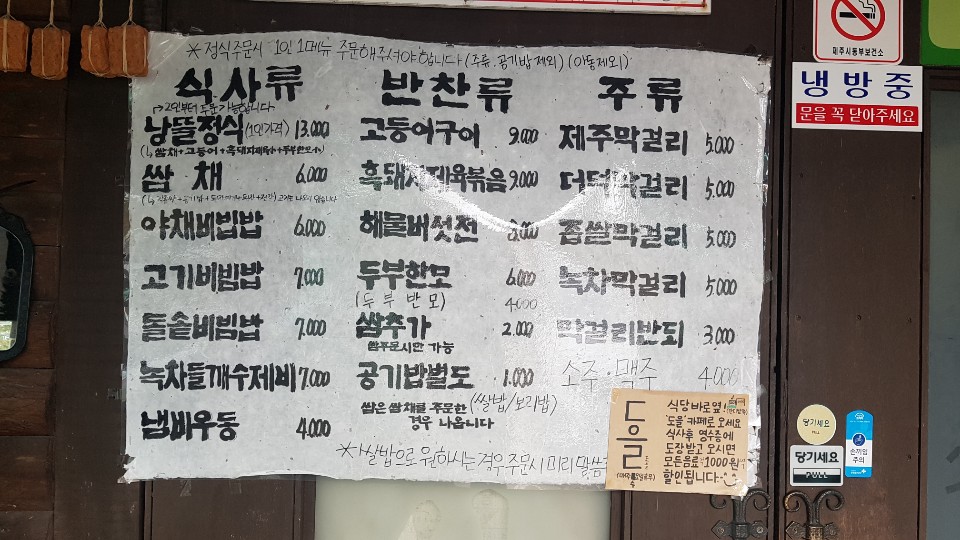 ※ 정식주문시 1인 1메뉴 주문해주셔야합니다 (주류, 공기밥 제외) (아동제외)
식사류
2인부터 주문가능합니다
낭뜰정식 (1인가격) 13.000
(쌈채+고등어+흑돼지제육+두부한모)
쌈채 6.000
야채비빔밥 6.000
고기비빔밥 7.000
돌솥비빔밥 7.000
녹차들깨수제비 7.000
냄비우동 4.000
반찬류
고등어구이 9.000
흑돼지제육볶음 9.000
해물버섯전
두부한모 6.000
(두부반모) 4.000
쌈추가 2.000
쌈주문시만 가능
공기밥별도 1.000
(쌀밥/보리밥)
쌈은 쌈채를 주문한
경우 나옵니다
주류
제주막걸리 5.000
더덕막걸리 5.000
좁쌀막걸리 5.000
녹차막걸리 5.000
막걸리반되 3.000
소주·맥주 4.000
※쌀밥으로 원하시는 경우 주문시 미리 말씀
도을
식당 바로 옆!
'도을' 카페로 오세요
식사후 영수증에
도장받고 오시면
모든음료 1000원
할인됩니다~
제주시동부보건소
냉방중
문을 꼭 닫아주세요
당기세요
PULL
당기세요
PULL
손끼임
주의